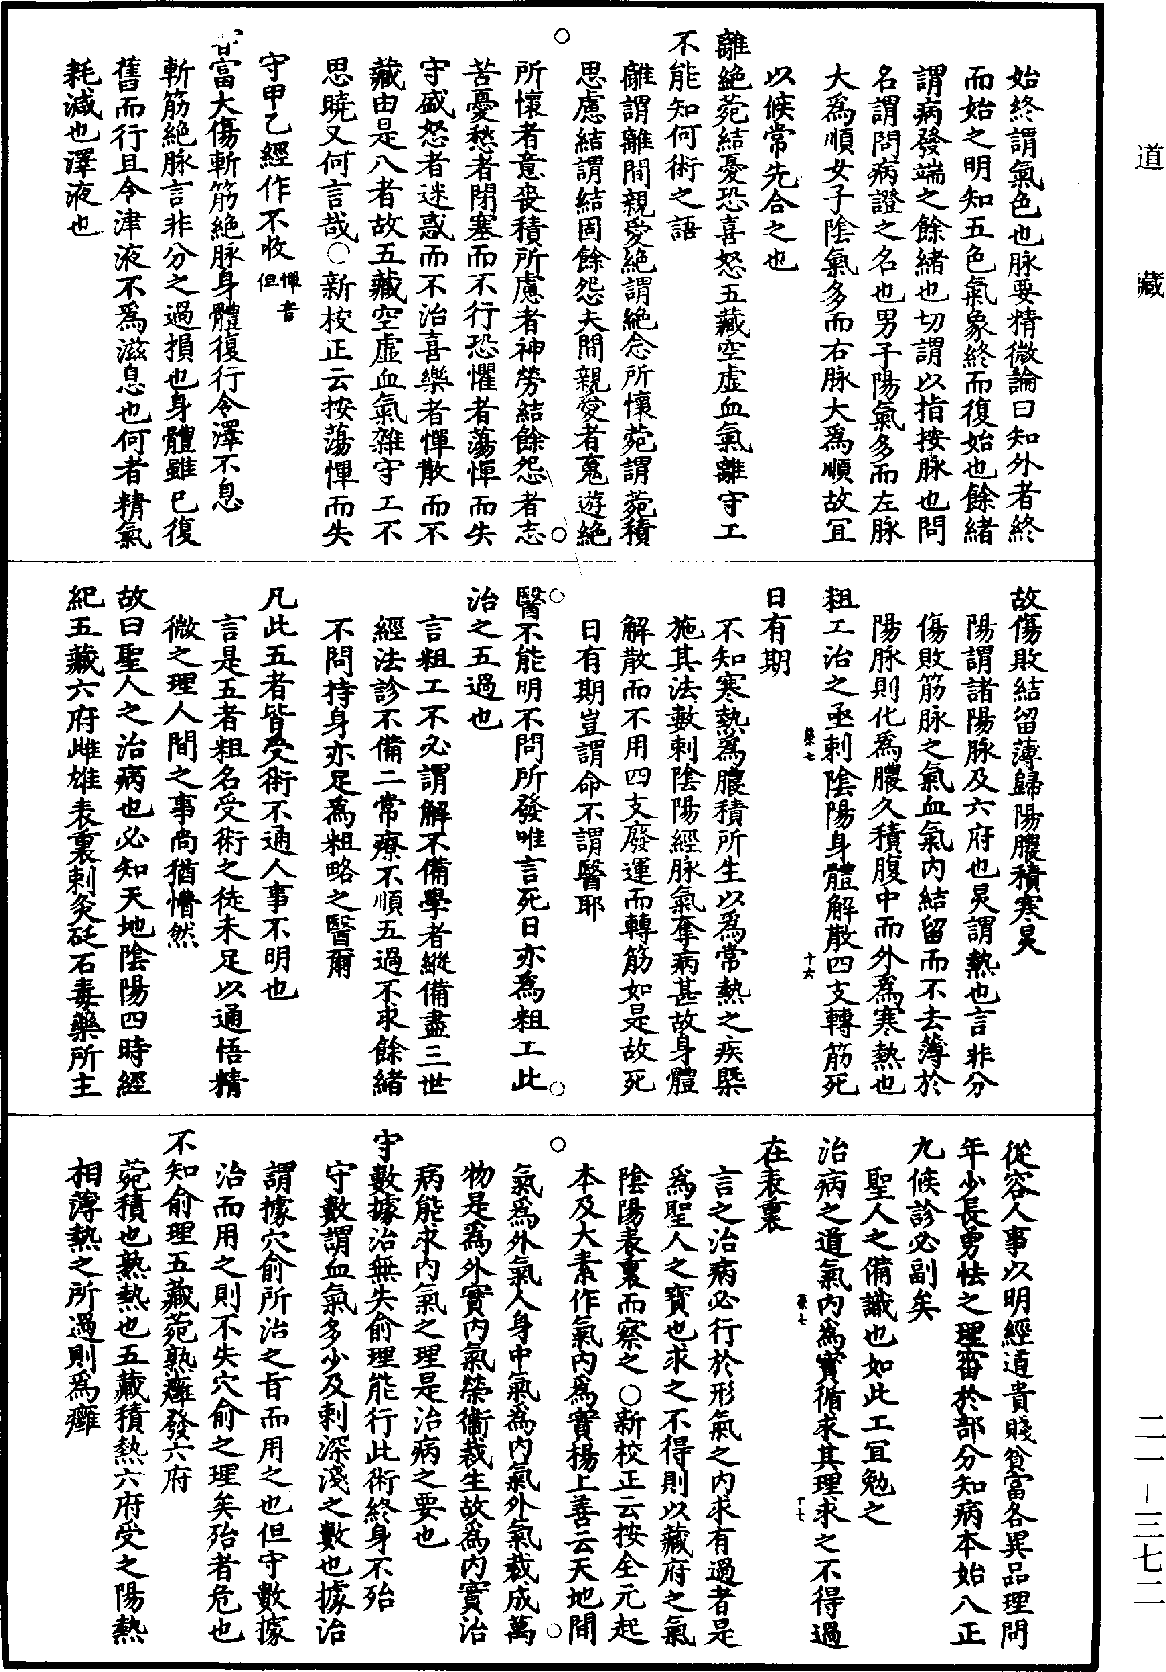 道藏
始終謂氣色也脉要精微論曰知外者終
而始之明知五色氣象終而復始也餘緒
謂病發端之餘緒也切謂以指按脉也問
名謂問病證之名也男子陽氣多而左脉
大爲順女子陰氣多而右脉大爲順故宜
以候常先合之也
離絶菀結憂恐喜怒五藏空虛血氣離守工
不能知何術之語
離謂離間親愛絶謂絶念所懷菀謂菀積
思慮結謂結固餘怨夫間親愛者魂遊絶
所懷者意喪積所慮者神勞結餘怨者志
苦憂愁者閉塞而不行恐懼者蕩憚而失
守盛怒者迷惑而不治喜樂者憚散而不
藏由是八者故五藏空虛血氣離守工不
思曉又何言哉○新校正云按蕩憚而失
守甲乙經作不收憚音但
嘗富大傷斬筋絶脉身體復行令澤不息
斬筋絶脉言非分之過損也身體雖已復
舊而行且令津液不爲滋息也何者精氣
耗減也澤液也
故傷敗結留薄歸陽膿積寒炅
陽謂諸陽脉及六府也炅謂熱也言非分
傷敗筋脉之氣血氣內結留而不去薄於
陽脉則化爲膿久積腹中而外爲寒熱也
粗工治之亟刺陰陽身體解散四支轉筋死
藥七
十六
日有期
不知寒熱爲膿積所生以爲常熱之疾槩
施其法數刺陰陽經脉氣奪病甚故身體
解散而不用四支廢運而轉筋如是故死
日有期豈謂命不謂醫耶
醫不能明不問所發唯言死日亦爲粗工此
治之五過也
言粗工不必謂解不備學者縱備盡三世
經法診不備二常療不順五過不求餘緒
不問持身亦足爲粗略之醫爾
凡此五者皆受術不通人事不明也
言是五者粗名受術之徒未足以通悟精
微之理人間之事尚猶懵然
故曰聖人之治病也必知天地陰陽四時經
紀五藏六府雌雄表裏刺灸砭石毒藥所主
從容人事以明經道貴賤貧富各異品理問
年少長勇怯之理審於部分知病本始八正
九候診必副矣
聖人之備識也如此工宜勉之
治病之道氣內爲寶循求其理求之不得過
藥七
十七
在表裏
言之治病必行於形氣之內求有過者是
爲聖人之寶也求之不得則以藏府之氣
陰陽表裏而察之○新校正云按全元起
本及大素作氣內爲實楊上善云天地間
氣爲外氣人身中氣爲內氣外氣裁成萬
物是爲外實內氣榮衞裁生故爲內實治
病能求內氣之理是治病之要也
守數據治無失俞理能行此術終身不殆
守數謂血氣多少及刺深淺之數也據治
謂據穴俞所治之旨而用之也但守數據
治而用之則不失穴俞之理矣殆者危也
不知俞理五藏菀熟癰發六府
菀積也熟熱也五藏積熱六府受之陽熱
相薄熱之所過則爲癰
二一－三七二